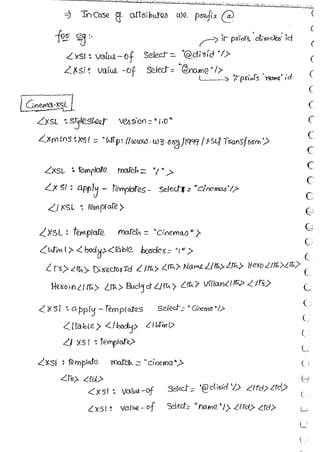 ⇒ In Case of attributes we prefix @
for eg :-
→ it prints dirodes id
<xsl : value-of select = "@dirid"/>
<xsl : value -of select = "@name"/>
→ It prints "name" id
Cinema.xsl
<XSL : stylesheet version = "1.0"
<xmlns : xsl = "http://www.w3.org/1999/XSL/Transform">
<XSL : template match = "/">
<xsl : apply - templates - select = "cinemas"/>
</XSL : template>
<XSL : template match = "cinemas">
<html> <body> <table border = "1">
<tr> <th> Director Id </th> <th> Name </th> <th> Hero </th> <th>
Heroin </th> <th> Budget </th> <th> Villan </th> </tr>
<xsl : apply - templates select = "Cinema"/>
</table> </body> </html>
</xsl : template>
<XSl : template match = "cinema">
<tr> <td>
<xsl : value-of select = "@dirid"/> </td> <td>
<xsl : value-of select = "name"/> </td> <td>